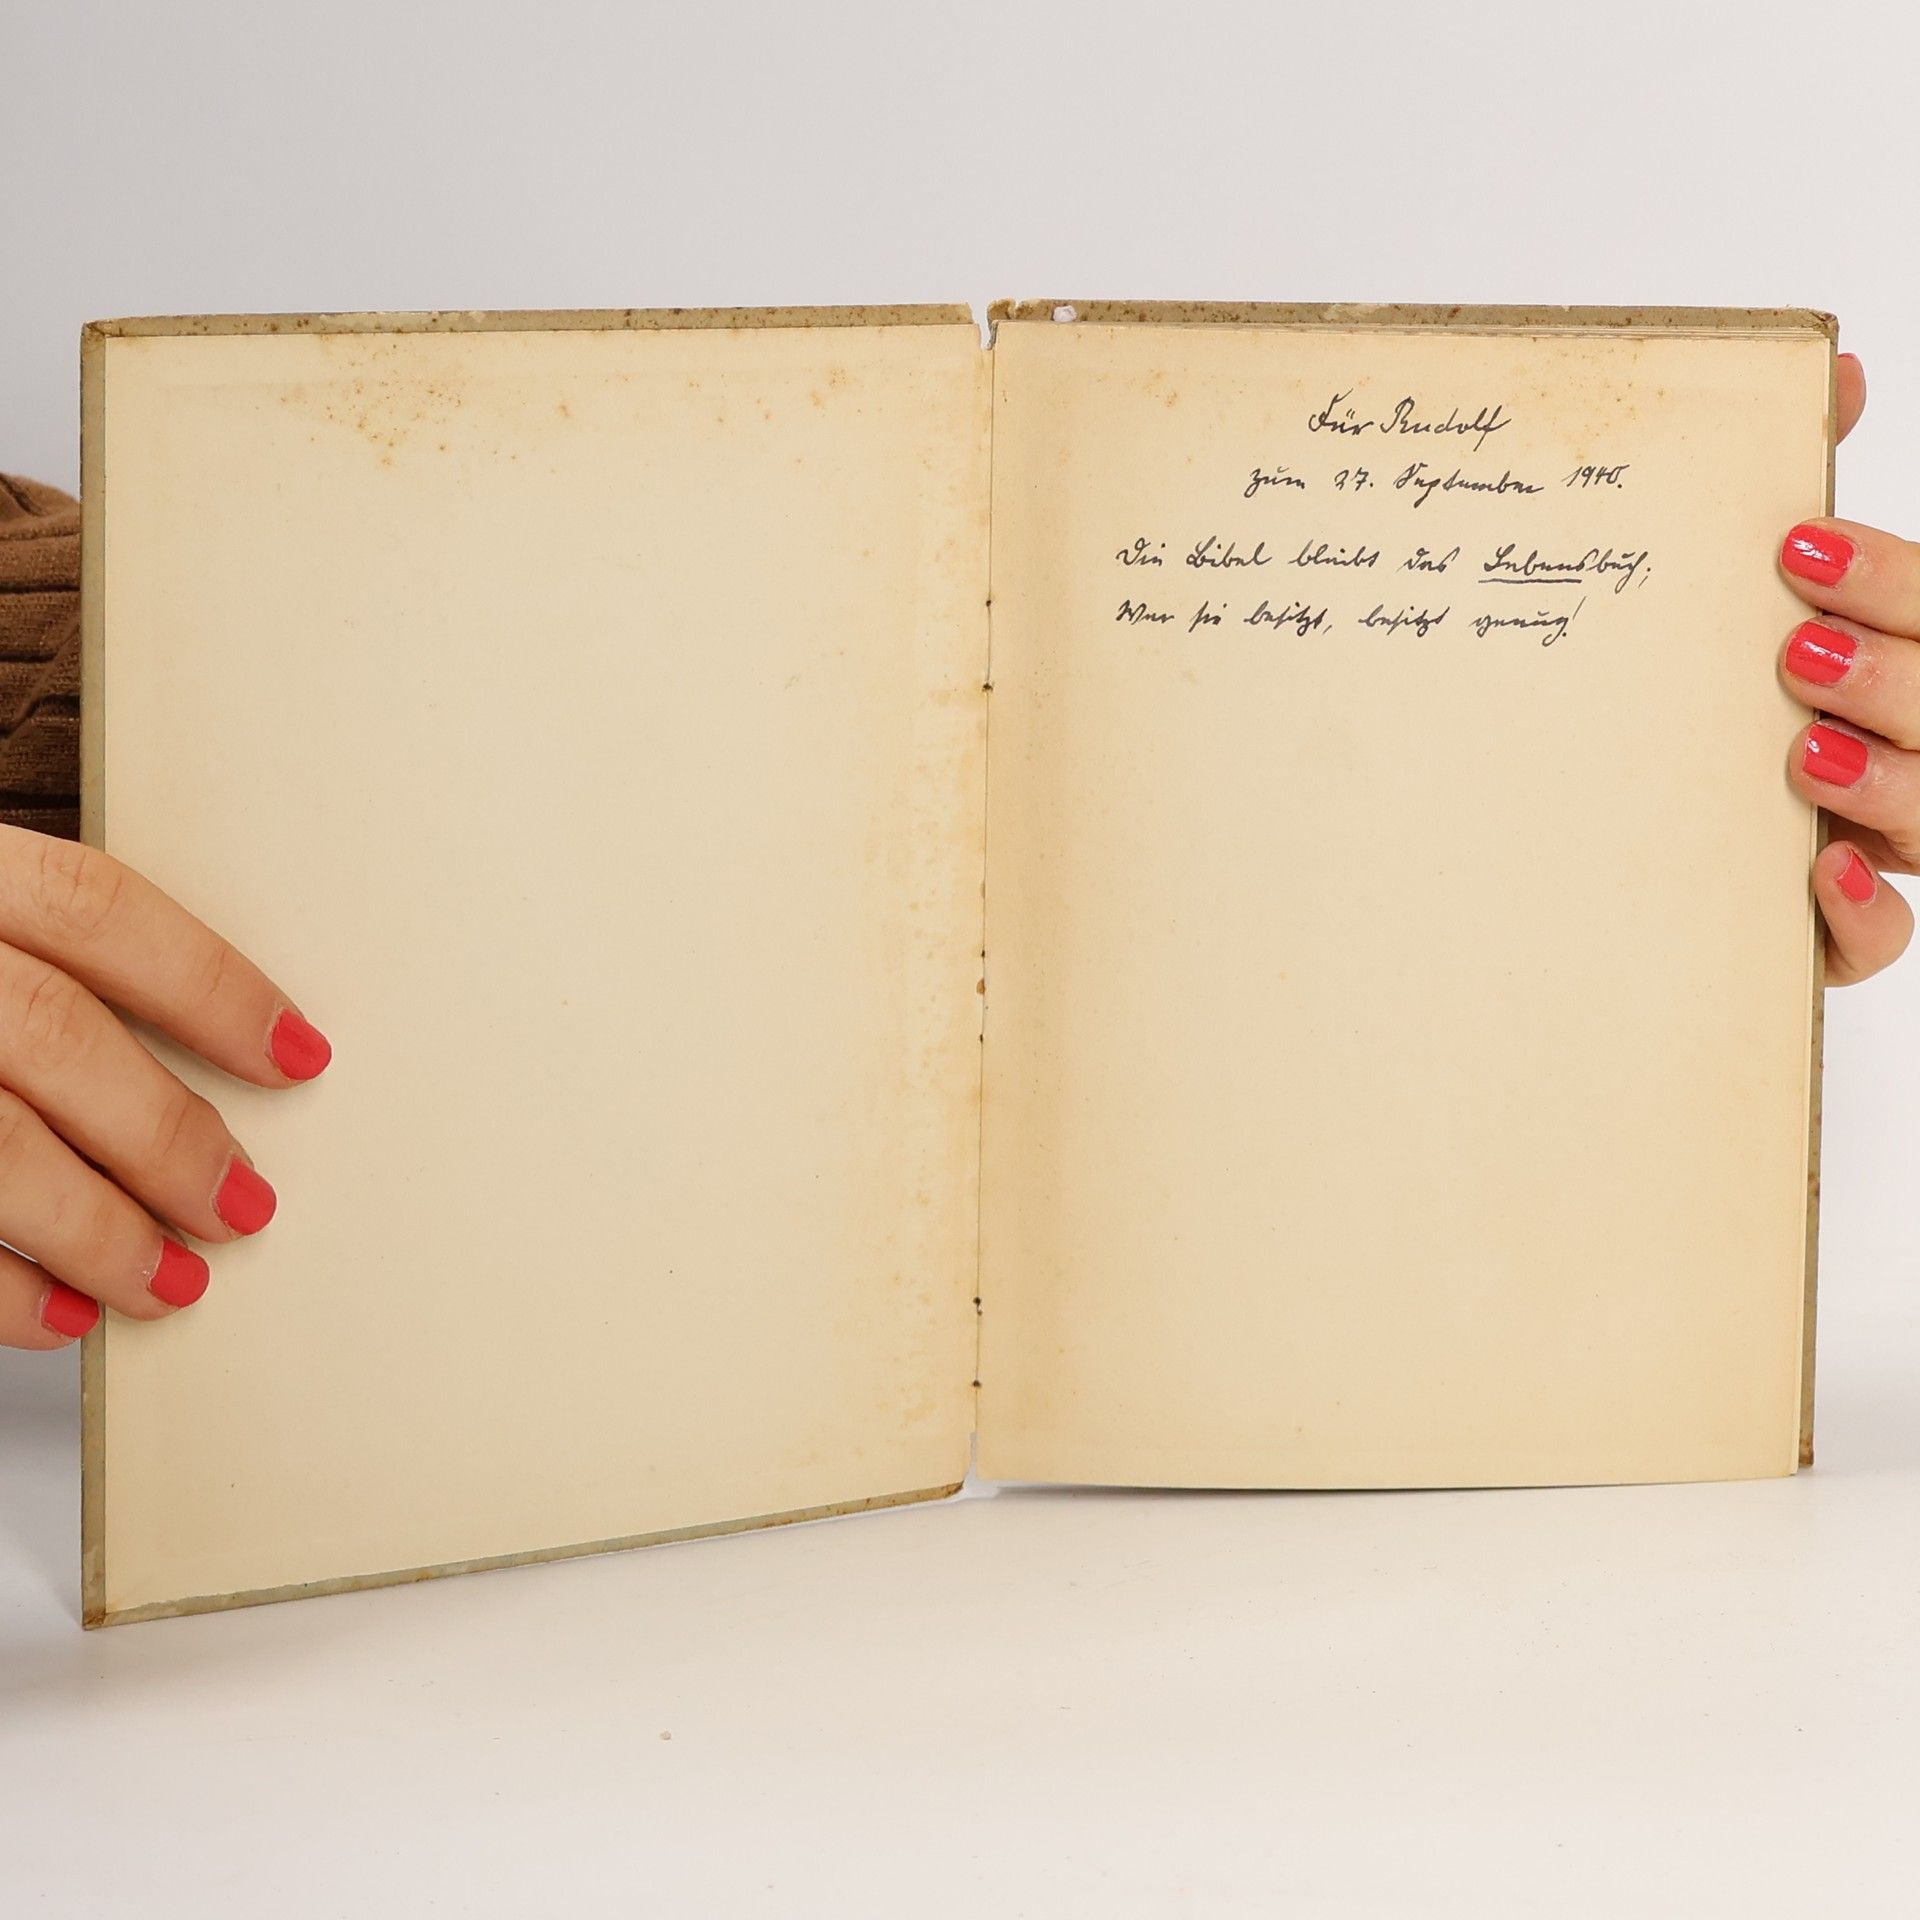 Für Rudolf
zum 27. September 1940.
Die Bibel bleibt das Lebensbuch;
Wer sie besitzt, besitzt genug!